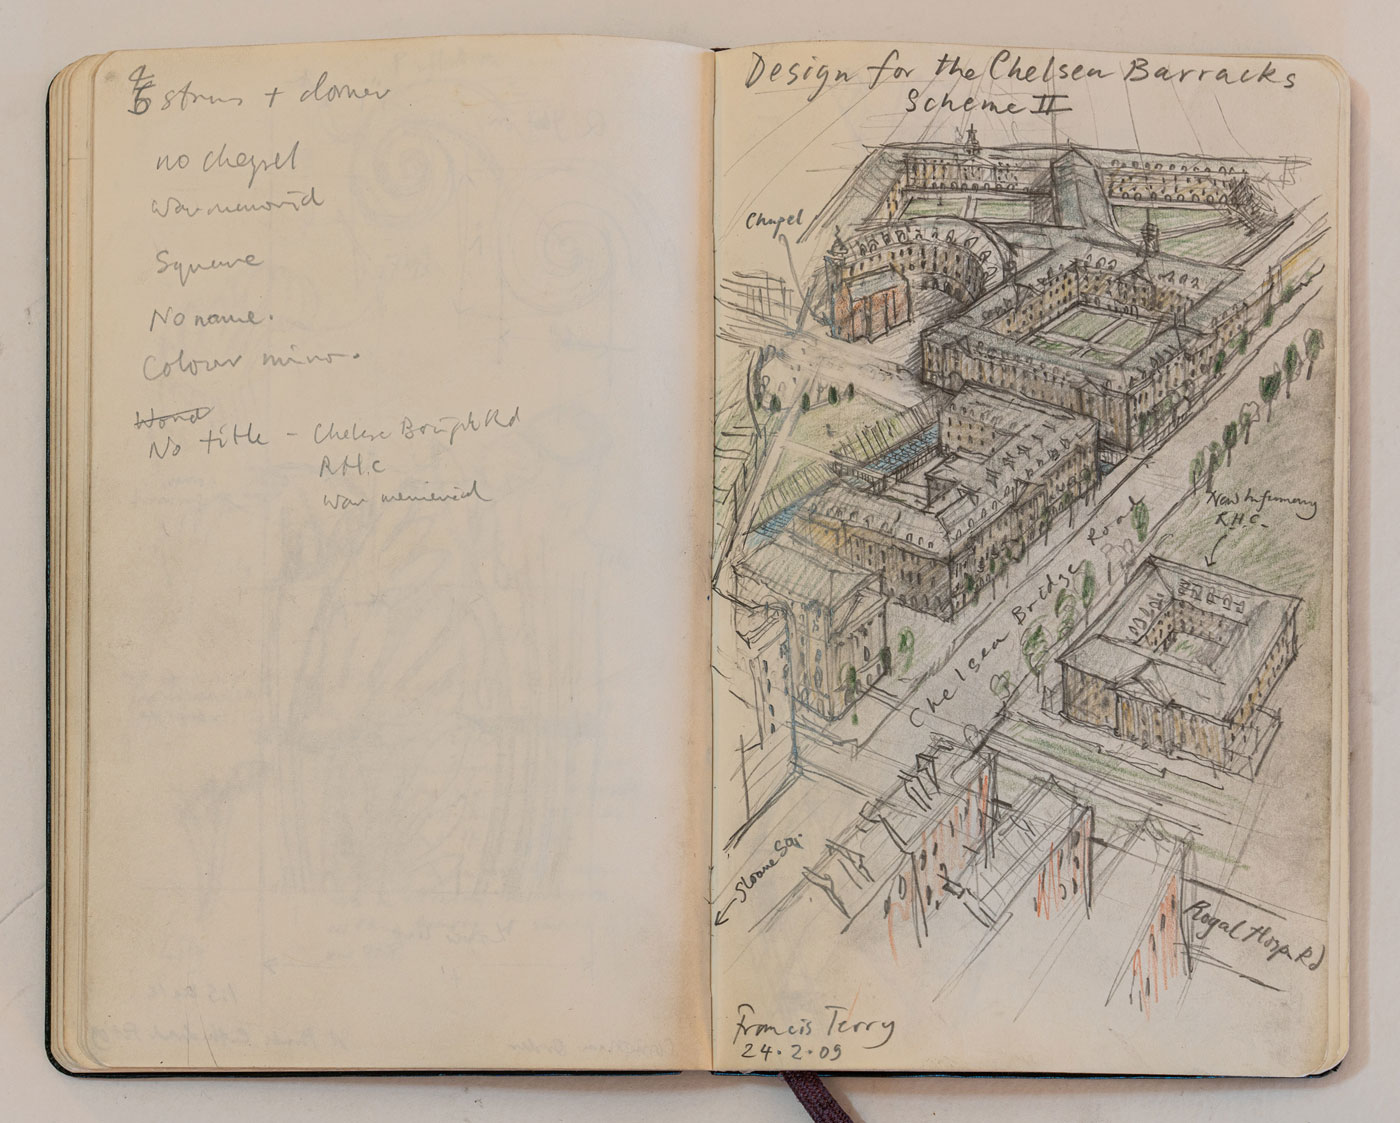 no chapel
war memorial
Square
No name.
Colour mirror.
No title - Chelsea Bridge Rd
R.H.C
war memorial
Design for the Chelsea Barracks
Scheme II
Chapel
New Infirmary
R.H.C.
Chelsea Bridge Road
Sloane Sq.
Royal Hosp. Rd
Francis Terry
24.2.09